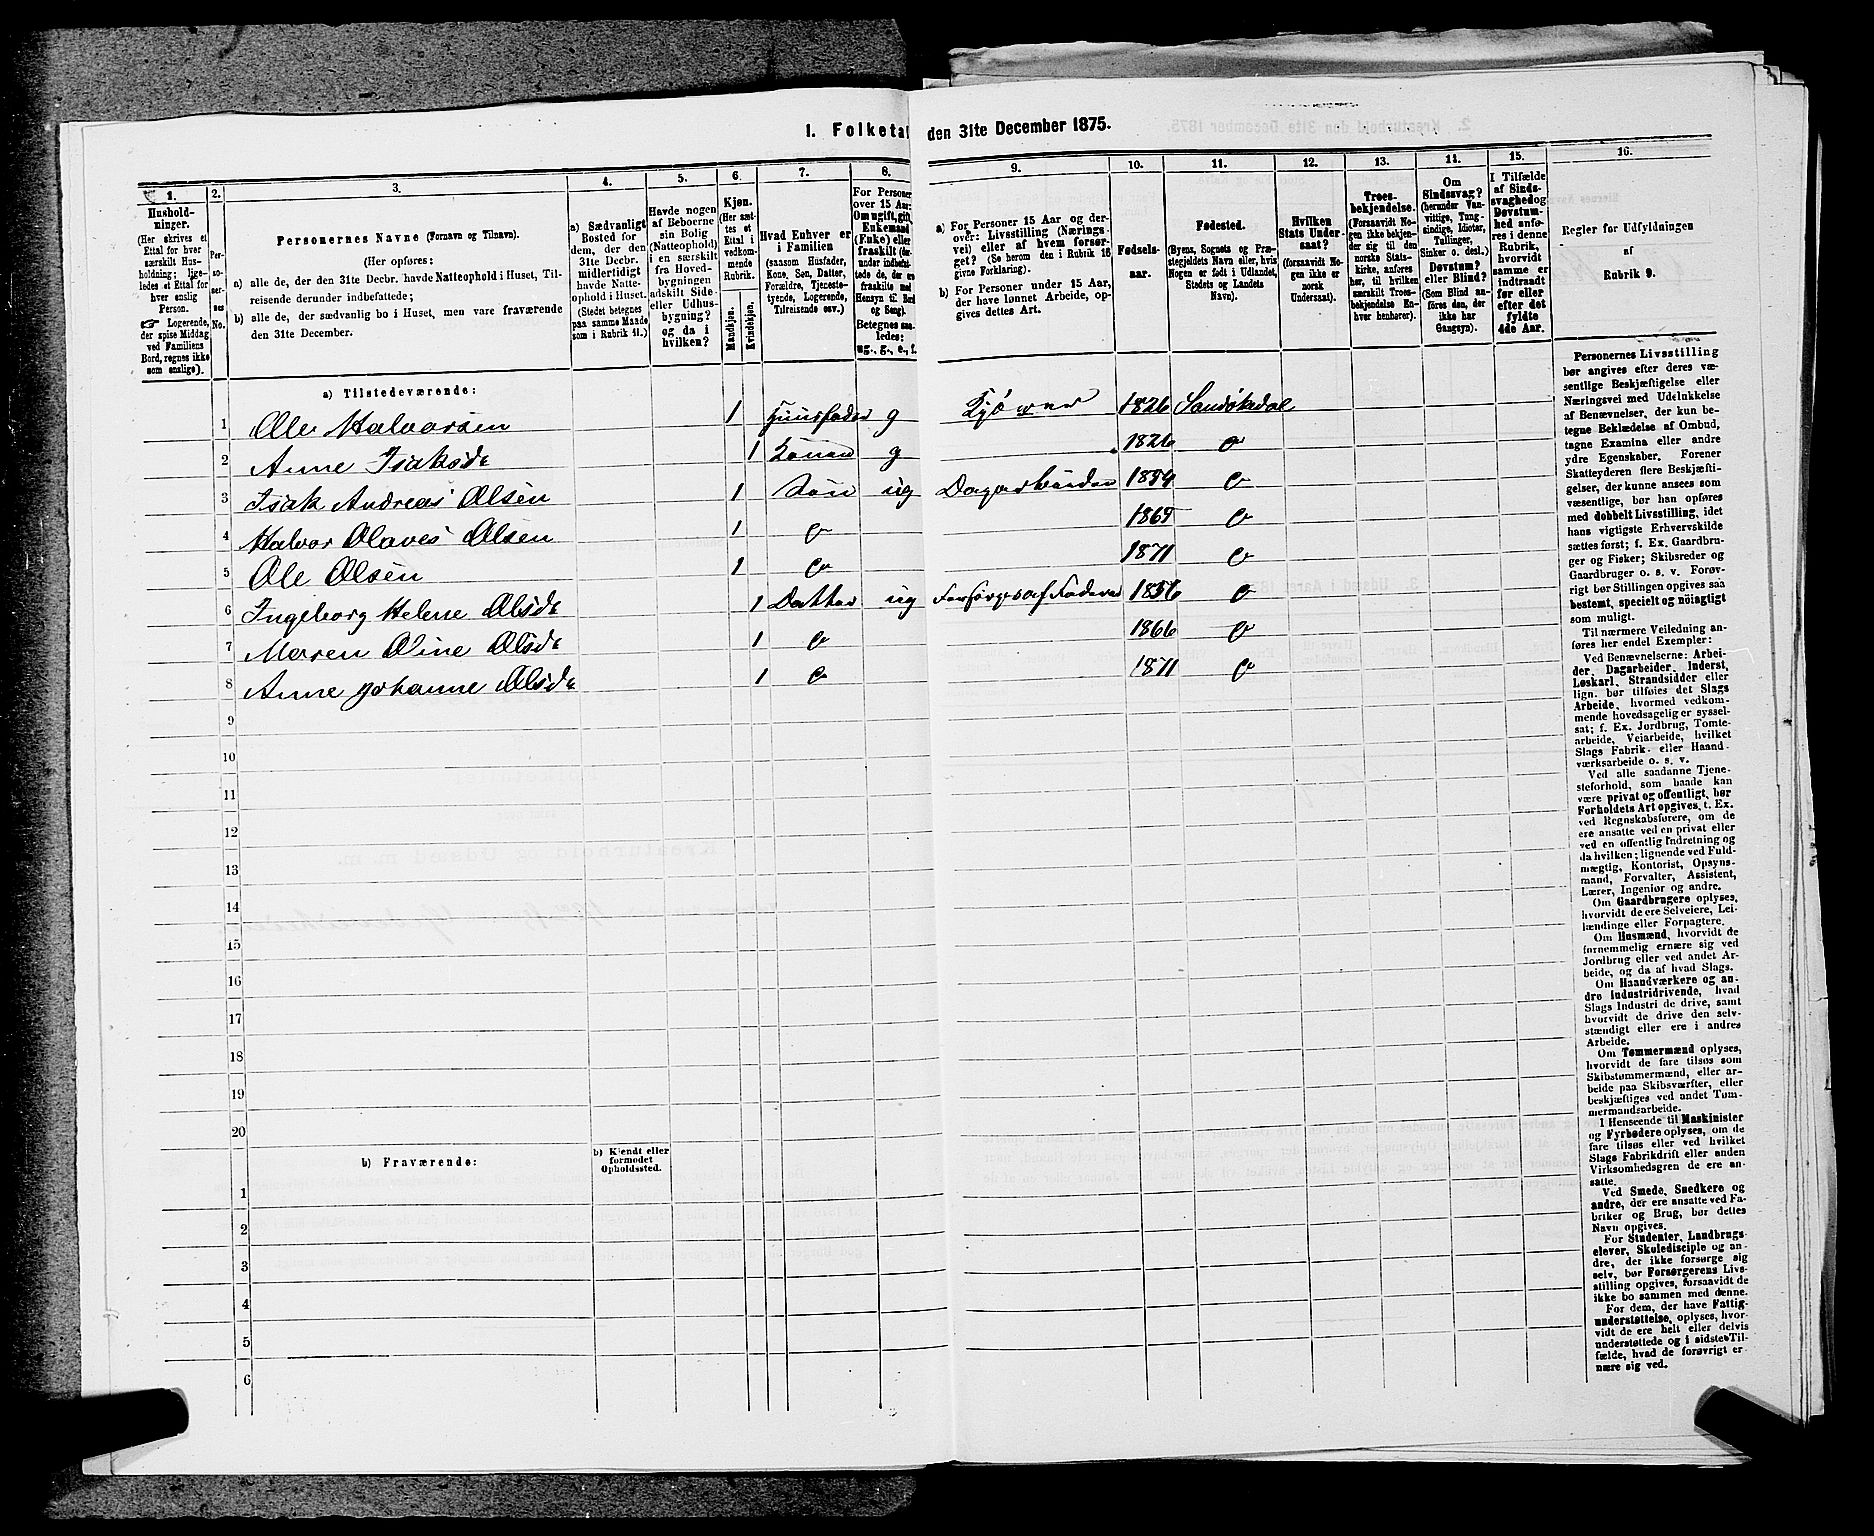 1. Folketal den 31te December 1875.
1. 2. 3. 4. 5. 6. 7. 8. 9. 10. 11. 12. 13. 14. 15. 16.
Hushold-
ninger.
(Her skrives et
Ettal for hver
særskilt Hus-
holdning; lige-
ledes et Ettal for
hver enslig
Person.
☞ Logerende,
der spise Middag
ved Familiens
Bord, regnes ikke
som enslige).
Per-
so-
ner-
nes
No.
Personernes Navne (Fornavn og Tilnavn).
(Her opføres:
a) alle de, der den 31te Decbr. havde Natteophold i Huset, Til-
reisende derunder indbefattede;
b) alle de, der sædvanlig bo i Huset, men vare fraværende
den 31te December.
a) Sædvanligt
Bosted for
dem, der den
31te Decbr.
midlertidigt
havde Natte-
ophold i Huset.
(Stedet betegnes
paa samme Maade
som i Rubrik 11.)
Havde nogen
af Beboerne
sin Bolig
(Natteophold)
i en særskilt
fra Hoved-
bygningen
adskilt Side-
eller Udhus-
bygning?
og da i
hvilken?
Kjøn.
(Her sæt-
tes et
Ettal i
vedkom-
mende
Rubrik.
Mandkjøn.
Kvindekjøn.
Hvad Enhver er
i Familien
(saasom Husfader,
Kone, Søn, Datter,
Forældre, Tjeneste-
tyende, Logerende,
Tilreisende osv.)
For Personer
over 15 Aar:
Om ugift, gift,
Enkemand
(Enke) eller
fraskilt (her-
under indbefat-
tede de, der ere
fraskilte med
Hensyn til Bord
og Seng).
Betegnes saa-
ledes:
ug., g., e., f.
a) For Personer 15 Aar og der-
over: Livsstilling (Nærings-
vei) eller af hvem forsør-
get? (Se herom den i Rubrik 16
givne Forklaring).
b) For Personer under 15 Aar,
der have lønnet Arbeide, op-
gives dettes Art.
Fødsels-
aar.
Fødested.
(Byens, Sognets og Præ-
stegjeldets Navn eller, hvis
Nogen er født i Udlandet,
Stedets og Landets
Navn).
Hvilken
Stats Under-
saat?
(forsaavidt No-
gen ikke er
norsk
Undersaat).
Troes-
bekjendelse.
(Forsaavidt No-
gen ikke bekjen-
der sig til den
norske Stats-
kirke, anføres
her, til hvilken
særskilt Troes-
bekjendelse En-
hver henhører).
Om
Sindssvag?
(herunder Van-
vittige, Tung-
sindige, Idioter,
Tullinger,
Sinker o. desl.)
Døvstum?
eller Blind?
(Som Blind an-
føres den, der
ikke har
Gangsyn).
I Tilfælde
af Sinds-
svaghed og
Døvstum-
hed anfø-
res i denne
Rubrik,
hvorvidt
samme er
indtraadt
før eller
efter det
fyldte
4de Aar.
Regler for Udfyldningen
af
Rubrik 9.
a) Tilstedeværende:
1 Ole Halvorsen 1 Huusfader g 1826
2 Anne Isaksd. 1 Konen g 1826 o
3 Isak Andreas Olsen 1 Søn ug Dagarbeider 1854 o
4 Halvor Olaves Olsen 1 o 1865 o
5 Ole Olsen 1 o 1871 o
6 Ingeborg Helene Olsd. 1 Datter ug Forsørges af Faderen 1856 o
7 Maren Oline Olsd. 1 o 1866 o
8 Anne Johanne Olsd. 1 o 1871 o
9
10
11
12
13
14
15
16
17
18
19
20
b) Fraværende:
b) Kjendt eller
formodet
Opholdssted.
1
2
3
4
5
6
Personernes Livsstilling
bør angives efter deres væ-
sentlige Beskjæftigelse eller
Næringsvei med Udelukkelse
af Benævnelser, der kun be-
tegne Beklædelse af Ombud,
tagne Examina eller andre
ydre Egenskaber. Forener
Skatteyderen flere Beskjæfti-
gelser, der kunne ansees som
væsentlige, bør han opføres
med dobbelt Livsstilling, idet
hans vigtigste Erhvervskilde
sættes først; f. Ex. Gaardbru-
ger og Fisker; Skibsreder og
Gaardbruger o. s. v. Forøv-
rigt bør Stillingen opgives saa
bestemt, specielt og nöiagtigt
som muligt.
Til nærmere Veiledning an-
føres her endel Exempler:
Ved Benævnelserne: Arbei-
der, Dagarbeider, Inderst,
Løskarl, Strandsidder eller
lign. bør tilføies det Slags
Arbeide, hvormed vedkom-
mende hovedsagelig er syssel-
sat; f. Ex. Jordbrug, Tomte-
arbeide, Veiarbeide, hvilket
Slags Fabrik- eller Haand-
værksarbeide o. s. v.
Ved alle saadanne Tjene-
steforhold, som baade kan
være privat og offentligt, bør
Forholdets Art opgives, t. Ex.
ved Regnskabsførere, om de
ere ansatte ved en privat eller
ved en offentlig Indretning og
da hvilken; lignende ved Fuld-
mægtig, Kontorist, Opsyns-
mand, Forvalter, Assistent,
Lærer, Ingeniør og andre.
Om Gaardbrugere oplyses,
hvorvidt de ere Selveiere, Lei-
lændinge eller Forpagtere.
Om Husmænd, hvorvidt de
fornemmelig ernære sig ved
Jordbrug eller ved andet Ar-
beide, og da af hvad Slags.
Om Haandværkere og an-
dre Industridrivende, hvad
Slags Industri de drive, samt
hvorvidt de drive den selv-
stændigt eller ere i andres
Arbeide.
Om Tømmermænd oplyses,
hvorvidt de fare tilsøs som
Skibstømmermænd, eller ar-
beide paa Skibsværfter, eller
beskjæftiges ved andet Tøm-
mermandsarbeide.
I Henseende til Maskinister
og Fyrbødere oplyses, om de
fare tilsøs eller ved hvilket
Slags Fabrikdrift eller anden
Virksomhedsgren de ere an-
satte.
Ved Smede, Snedkere og
andre, der ere ansatte ved Fa-
briker og Brug, bør dettes
Navn opgives.
For Studenter, Landbrugs-
elever, Skoledisciple og an-
dre, der ikke forsørge sig
selv, bør Forsørgerens Livs-
stilling opgives, forsaavidt de
ikke bo sammen med denne.
For dem, der have Fattig-
understøttelse, oplyses, hvor-
vidt de ere helt eller delvis
understøttede og i sidste Til-
fælde, hvad de forøvrigt er-
nære sig ved.